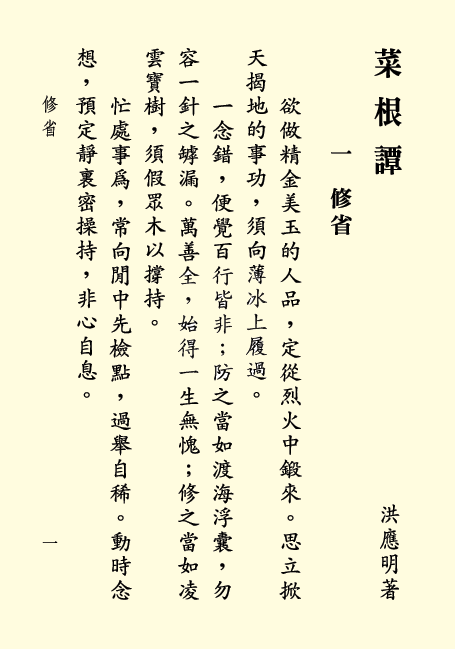 菜根譚
洪應明著
一　修省
欲做精金美玉的人品，定從烈火中鍛來。思立掀
天揭地的事功，須向薄冰上履過。
一念錯，便覺百行皆非；防之當如渡海浮囊，勿
容一針之罅漏。萬善全，始得一生無愧；修之當如凌
雲寶樹，須假眾木以撐持。
忙處事為，常向閒中先檢點，過舉自稀。動時念
想，預定靜裏密操持，非心自息。
修省
一